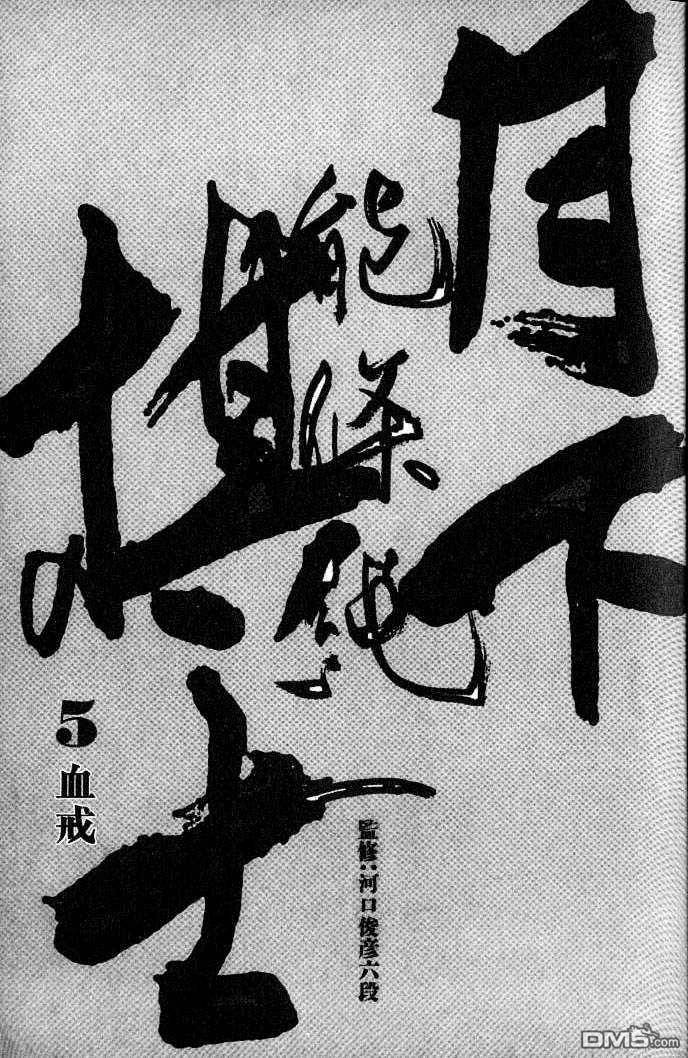 月下
棋士
能條純一
5 血戒
監修:河口俊彦六段
DM5.com